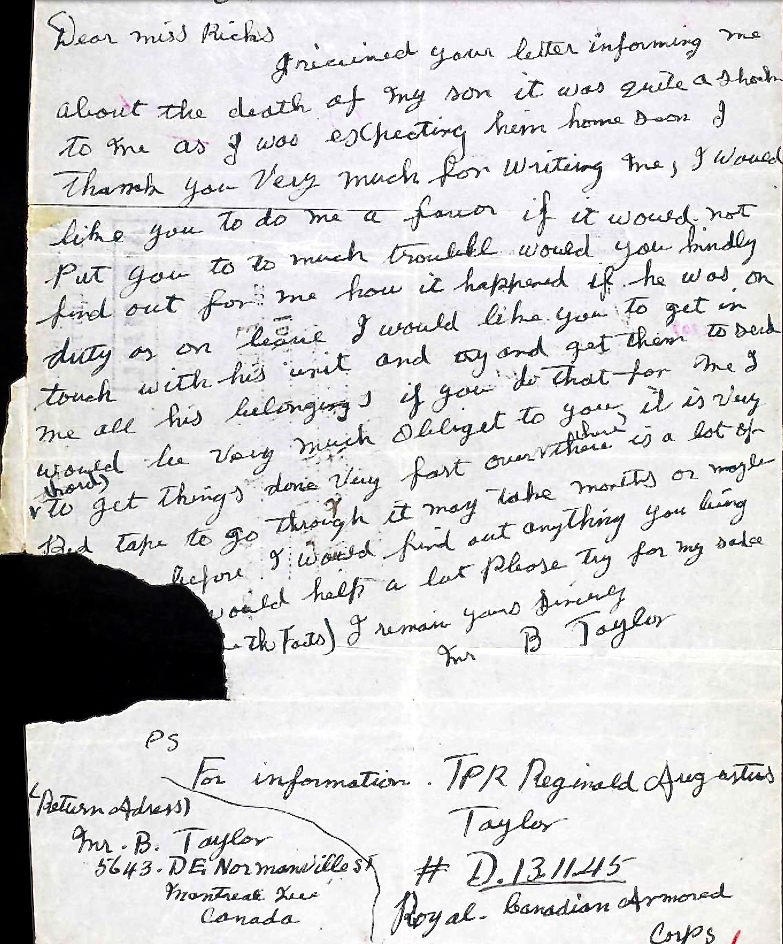 Dear miss Ricks
I recieved your letter informing me
about the death of my son it was quite a shock
to me as I was expecting him home soon I
Thank you Very much for Writing me, I would
like you to do me a favor if it would not
Put you to to much trouble would you kindly
find out for me how it happened if he was on
duty or on leave I would like you to get in
touch with his unit and try and get them to send
me all his belongings if you do that for me I
would be Very much Obliget to you, it is Very
hard to get things done Very fast over there is a lot of
Red tape to go through it may take months or maybe
before I would find out anything you being
would help a lot Please try for my sake
Facts) I remain yours Sincerly
Mr B Taylor
PS
For information. TPR Reginald Augustus
Taylor
# D.131145
Royal. Canadian Armored
Corps
(Return Adress)
Mr. B. Taylor
5643. DE Normanville st
Montreal Que
Canada